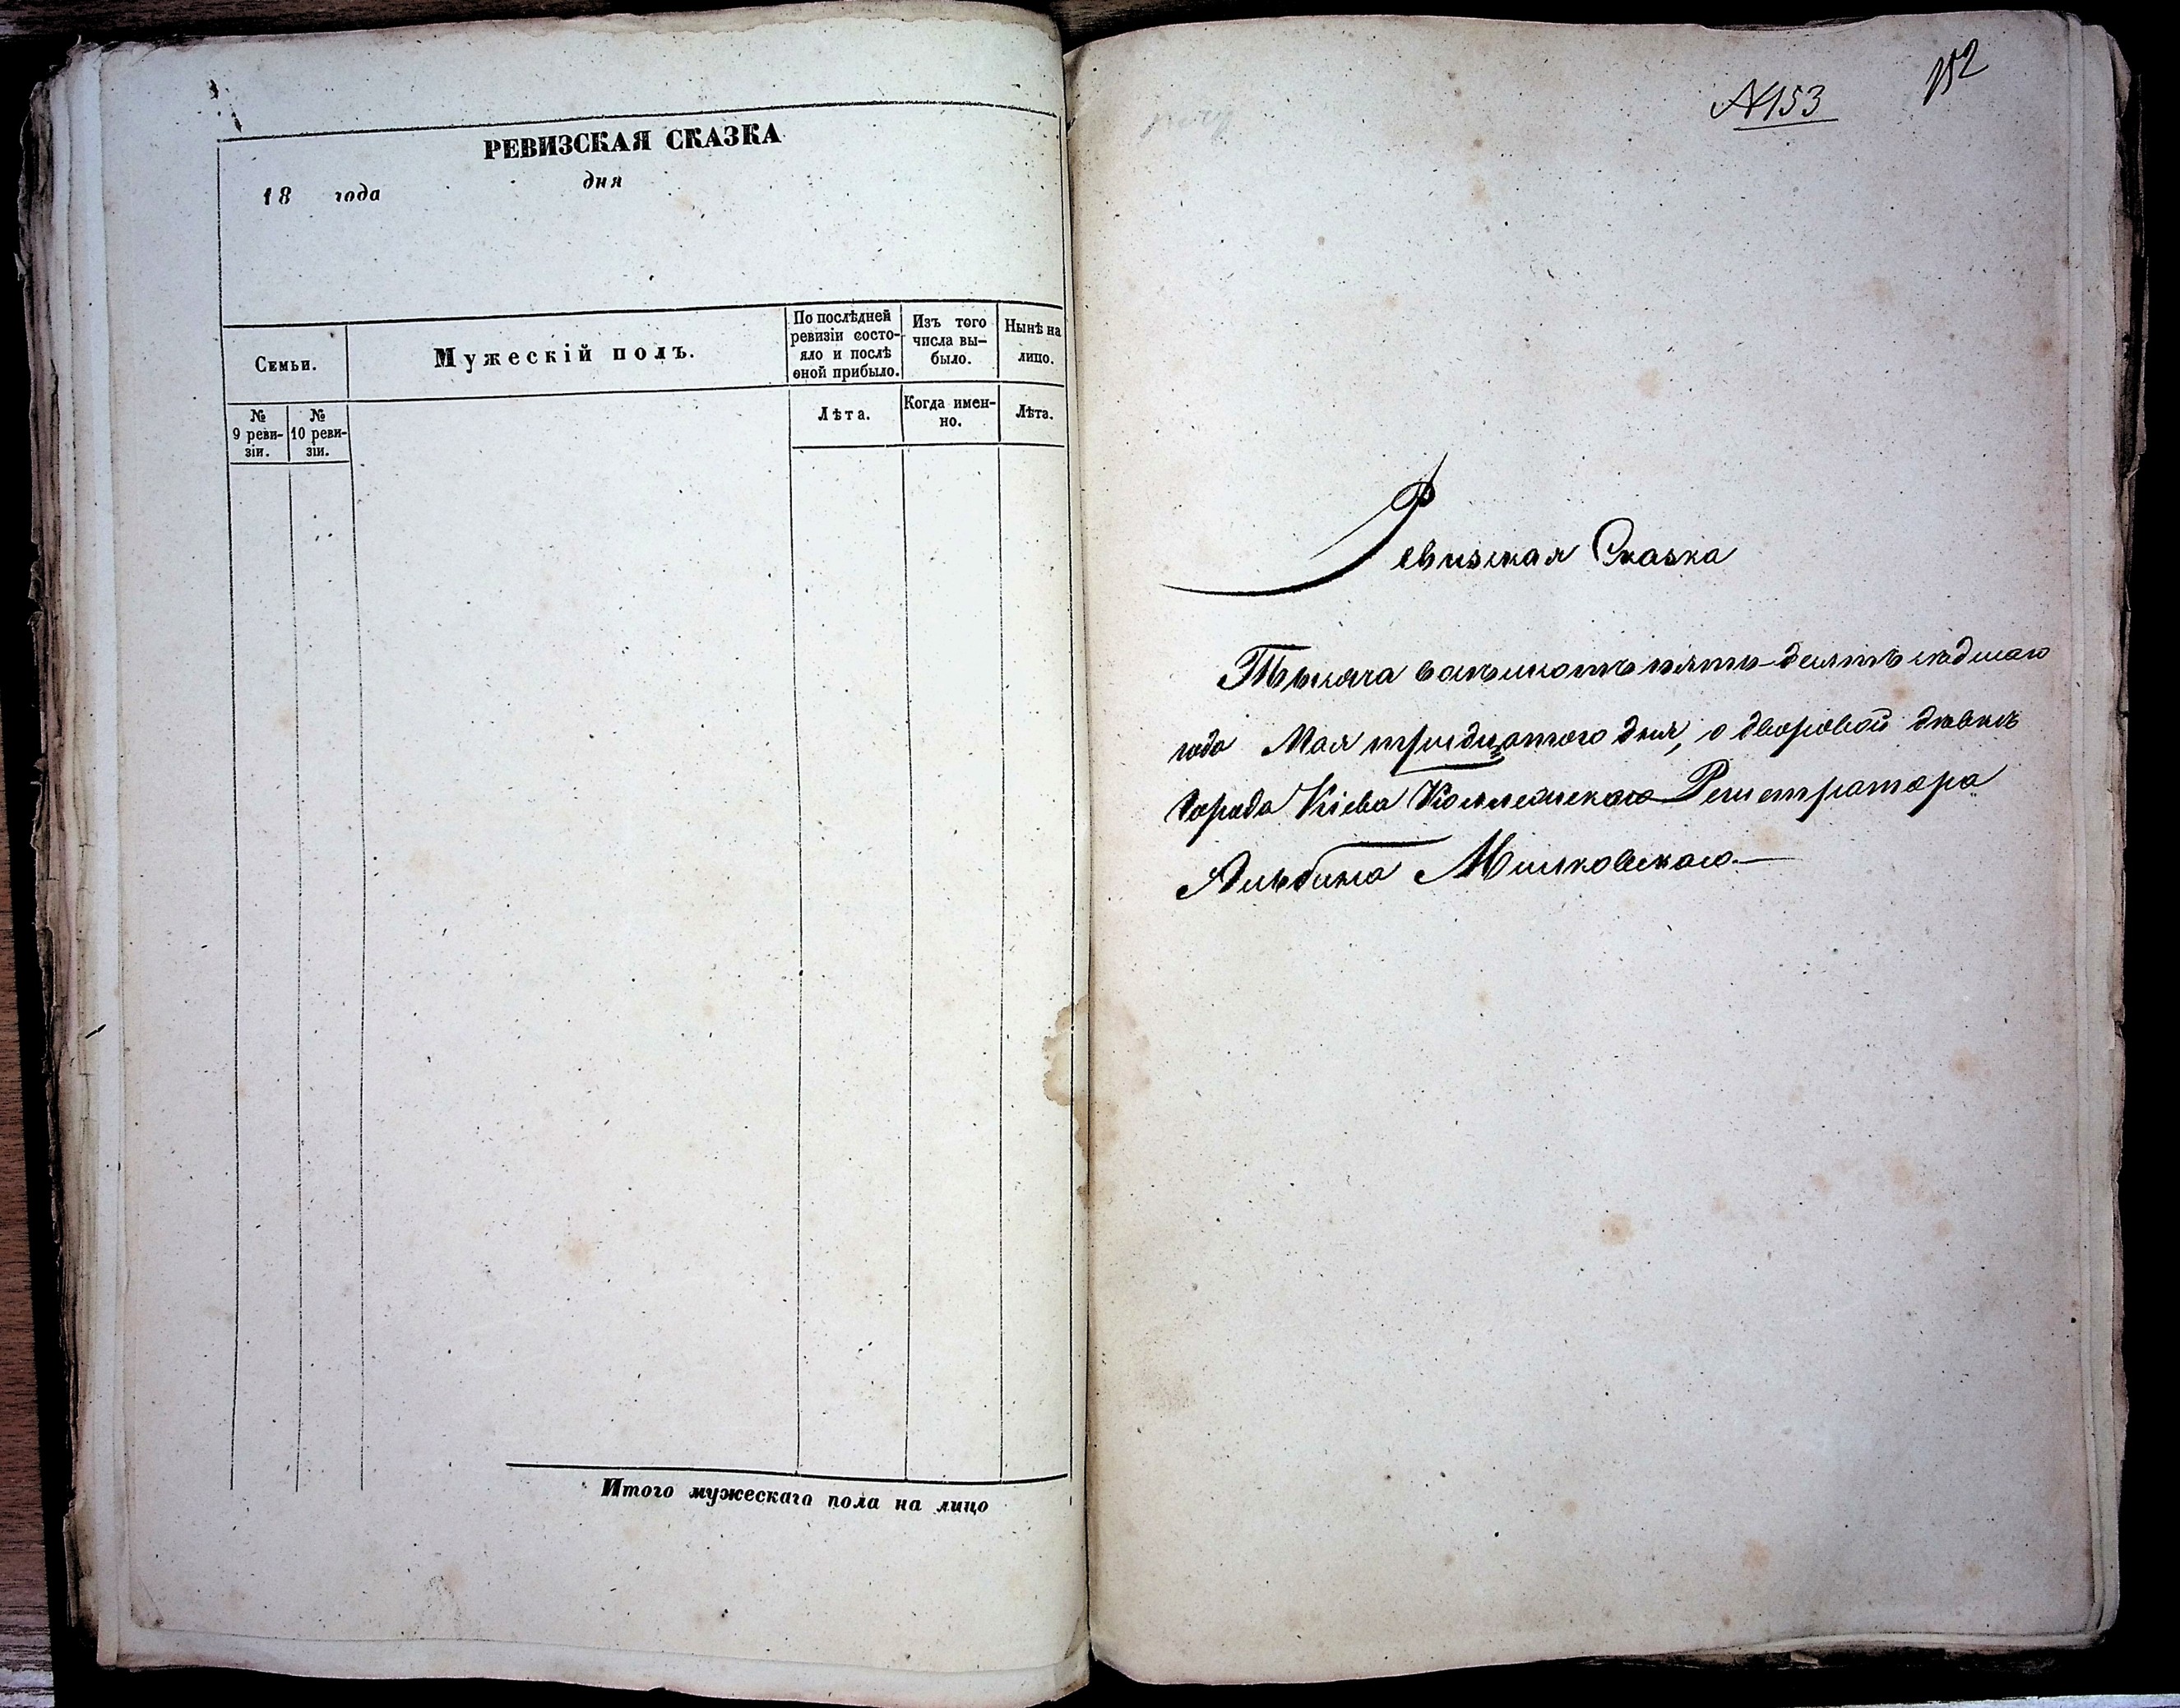 РЕВИЗСКАЯ СКАЗКА
18 года дня
Семьи.
Мужескій полъ.
По послѣдней
ревизіи состо-
яло и послѣ
оной прибыло.
Изъ того
числа вы-
было.
Нынѣ на
лицо.
№
9 реви-
зіи.
№
10 реви-
зіи.
Лѣта.
Когда имен-
но.
Лѣта.
Итого мужескаго пола на лицо
№153
152
Ревизская Сказка
Тысяча восемьсотъ пять-десятъ седмаго
года Мая тридцатого дня, о дворовой дѣвкѣ
города Кіева Коллежскаго Регистратора
Альбина Мошковскаго